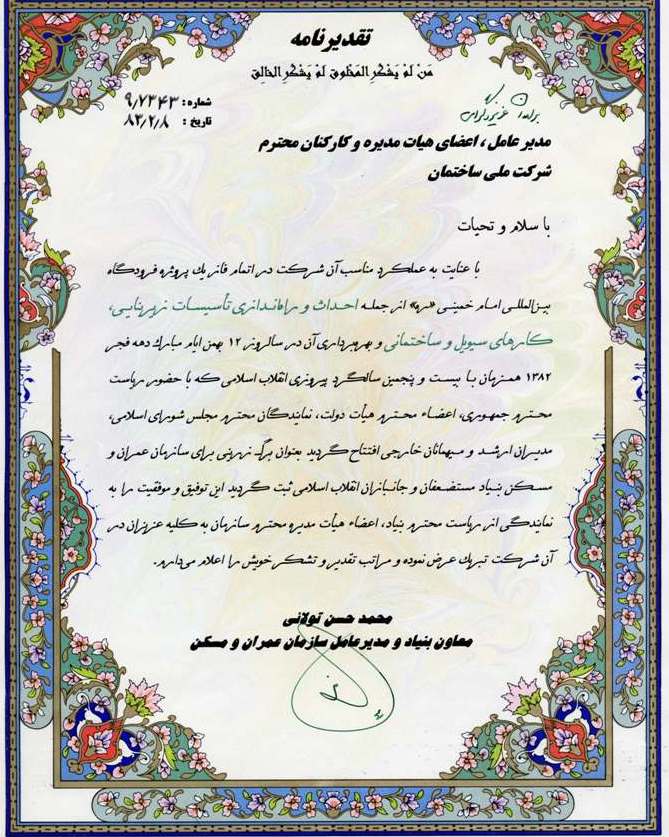 تقدیرنامه
مَن لَم یَشکُرِ المَخلوق لَم یَشکُرِ الخالِق
شماره: ۹/۷۳۴۳
تاریخ: ۸۳/۲/۸
مدیر عامل ، اعضای هیات مدیره و کارکنان محترم
شرکت ملی ساختمان
با سلام و تحیات
با عنایت به عملکرد مناسب آن شرکت در اتمام فاز یک پروژه فرودگاه
بین‌المللی امام خمینی «ره» از جمله احداث و راه‌اندازی تأسیسات زیربنایی،
کارهای سیویل و ساختمانی و بهره‌برداری آن در سالروز ۱۲ بهمن ایام مبارک دهه فجر
۱۳۸۲ همزمان با بیست و پنجمین سالگرد پیروزی انقلاب اسلامی که با حضور ریاست
محترم جمهوری، اعضاء محترم هیأت دولت، نمایندگان محترم مجلس شورای اسلامی،
مدیران ارشد و میهمانان خارجی افتتاح گردید بعنوان برگ زرینی برای سازمان عمران و
مسکن بنیاد مستضعفان و جانبازان انقلاب اسلامی ثبت گردید این توفیق و موفقیت را به
نمایندگی از ریاست محترم بنیاد، اعضاء هیأت مدیره محترم سازمان به کلیه عزیزان در
آن شرکت تبریک عرض نموده و مراتب تقدیر و تشکر خویش را اعلام می‌دارم.
محمد حسن تولائی
معاون بنیاد و مدیرعامل سازمان عمران و مسکن